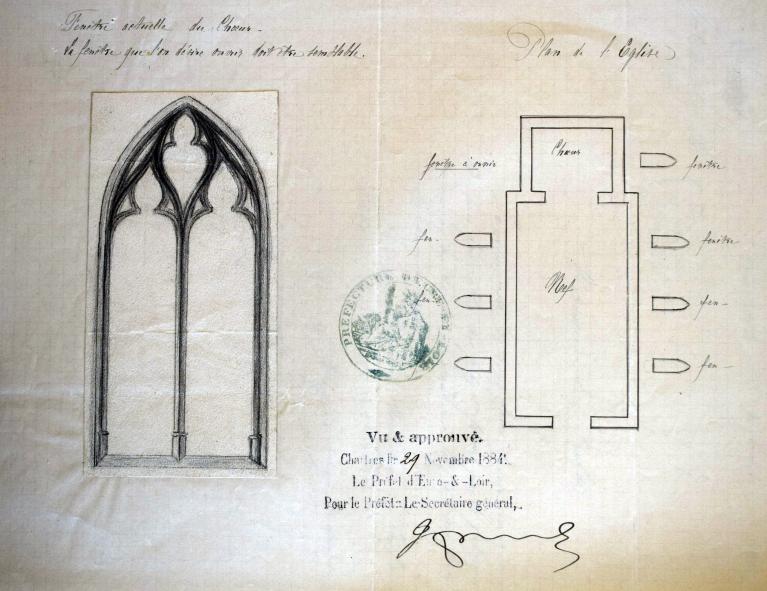 Fenêtre actuelle du Chœur.
La fenêtre que l'on désire ouvrir doit être semblable.
Plan de l'Eglise
Chœur
fenêtre à ouvrir
fenêtre
fen-
fenêtre
Nef
fen-
fen-
fen-
PRÉFECTURE D'EURE ET LOIR
Vu & approuvé.
Chartres le 29 Novembre 1884.
Le Préfet d'Eure-&-Loir,
Pour le Préfet: Le Secrétaire général,